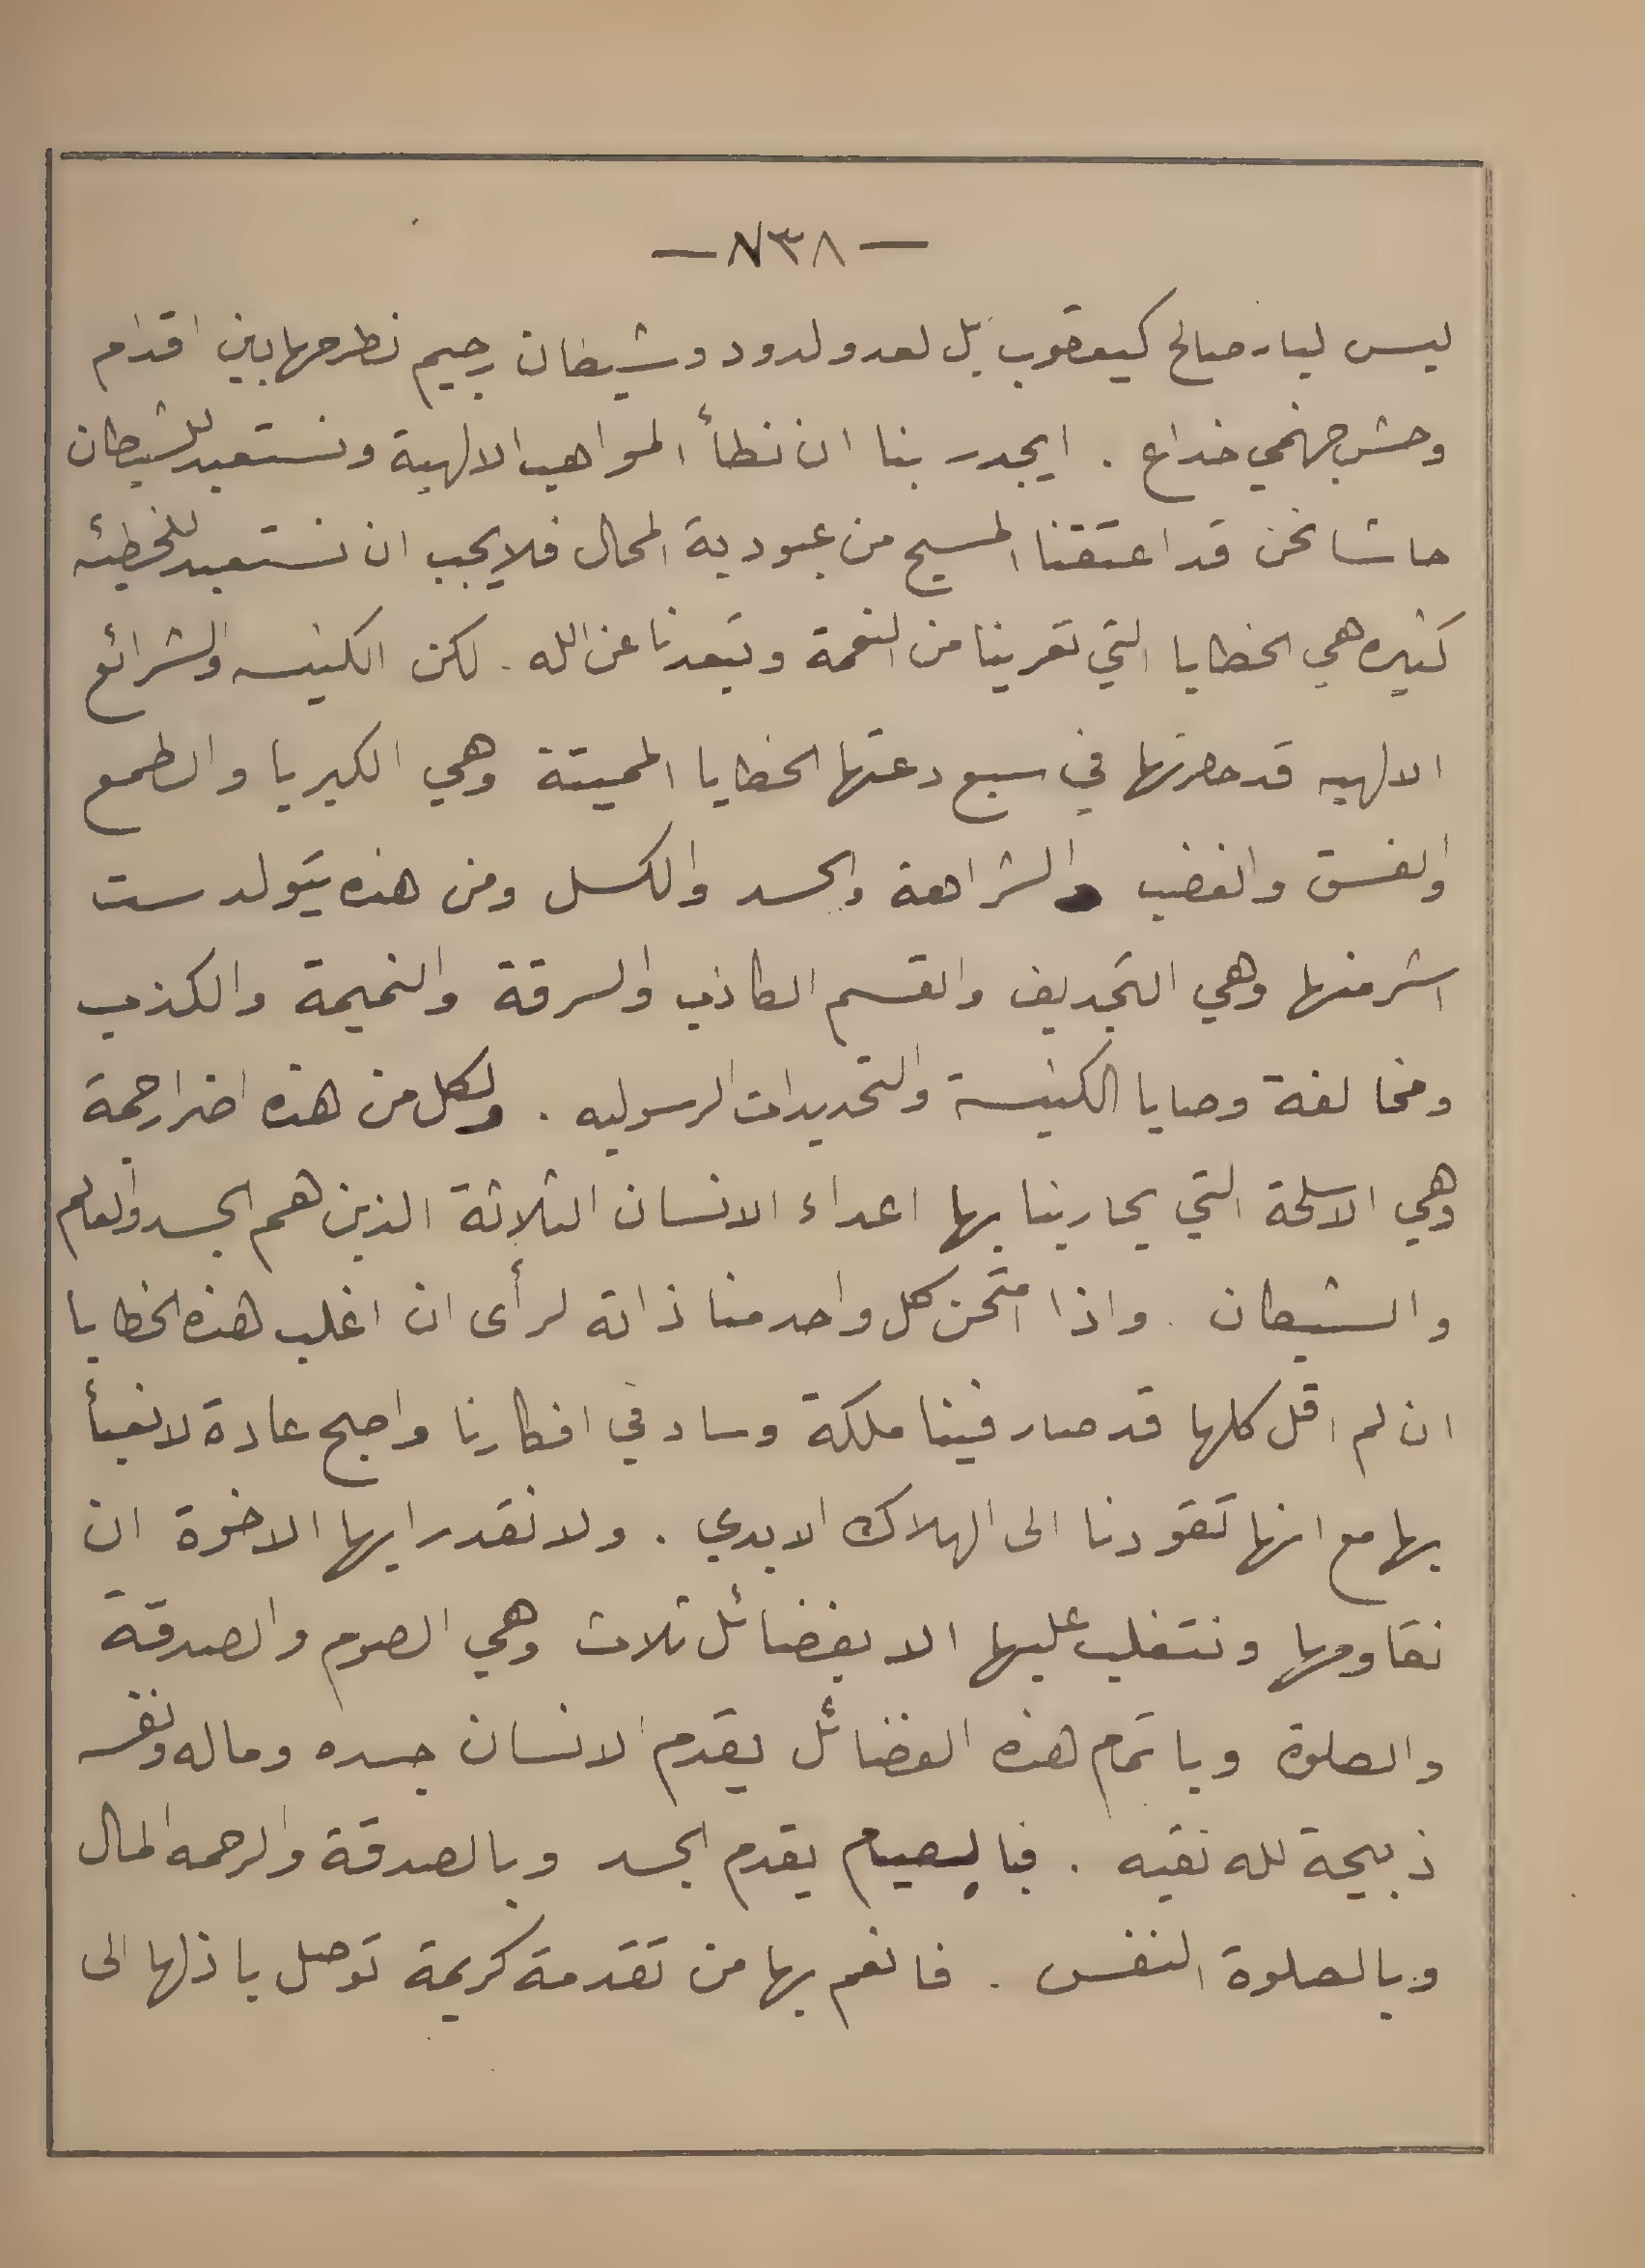 — ٧٣٨ —
ليس لبار صالح كيعقوب بل لعدو لدود وشيطان رجيم نطرحها بين اقدام
وحش جهنمي خداع . ايجدر بنا ان نطأ المواهب الالهية ونستعبد للشيطان
حاشا نحن قد اعتقنا المسيح من عبودية المحال فلا يجب ان نستعبد للخطيئه
كثيره هي الخطايا التي تعرينا من النعمة وتبعدنا عن الله . لكن الكنيسه والشرائع
الالهيه قد حصرتها في سبع دعتها الخطايا المميتة وهي الكبريا والطمع
والفسق والغضب والشراهة والحسد والكسل ومن هذه يتولد ست
اشر منها وهي التجديف والقسم الكاذب والسرقة والنميمة والكذب
ومخالفة وصايا الكنيسة والتحديدات الرسوليه . ولكل من هذه اضرار جمة
وهي الاسلحة التي يحاربنا بها اعداء الانسان الثلاثة الذين هم الجسد والعالم
والشيطان . واذا امتحن كل واحد منا ذاته لرأى ان اغلب هذه الخطايا
ان لم اقل كلها قد صار فينا ملكة وساد في افكارنا واصبح عادة لا نعبأ
بها مع انها تقودنا الى الهلاك الابدي . ولا نقدر ايها الاخوة ان
نقاومها ونتغلب عليها الا بفضائل ثلاث وهي الصوم والصدقة
والصلوة وباتمام هذه الفضائل يقدم الانسان جسده وماله ونفسه
ذبيحة لله نقيه . فبالصيام يقدم الجسد وبالصدقة والرحمه المال
وبالصلوة النفس . فانعم بها من تقدمة كريمة توصل باذلها الى